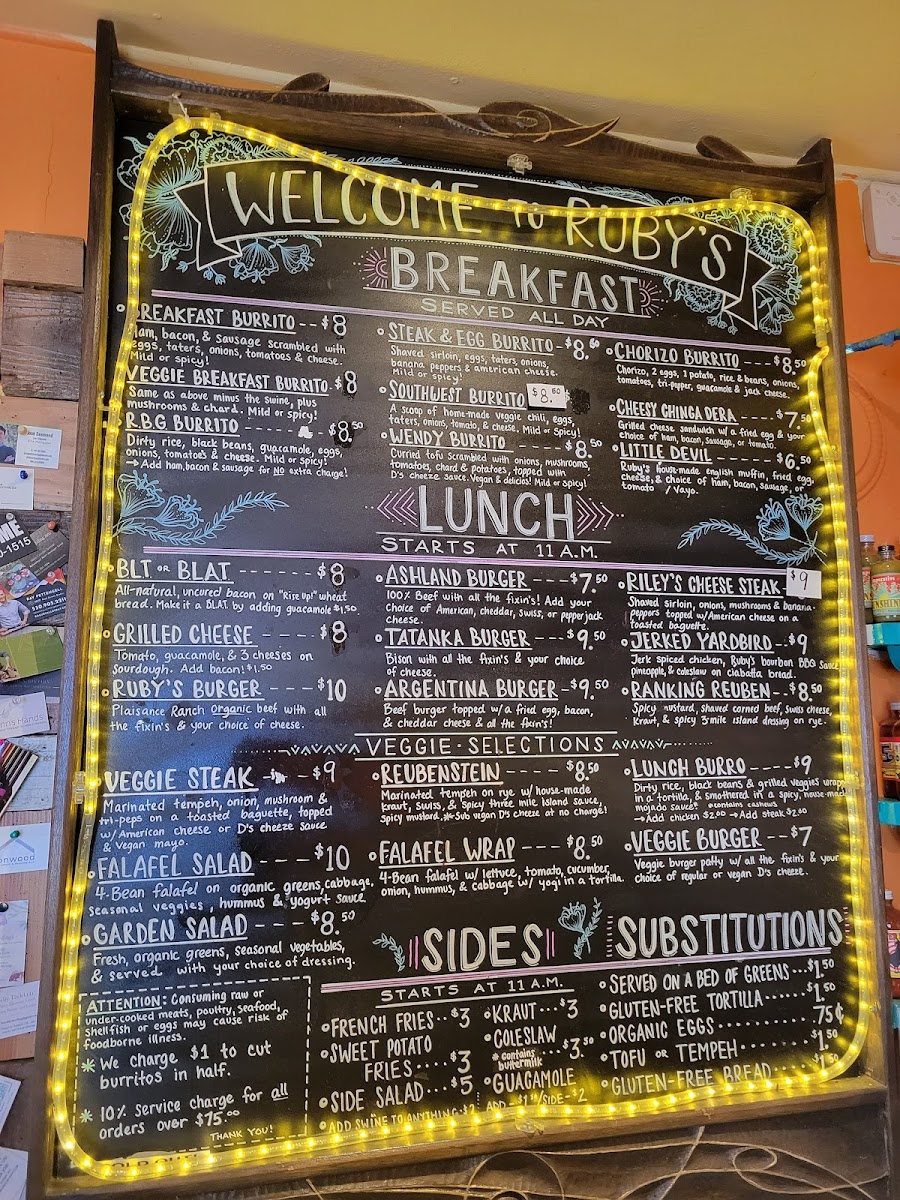 WELCOME TO RUBY'S
BREAKFAST
SERVED ALL DAY
BREAKFAST BURRITO -- $8
Ham, bacon, & sausage scrambled with
eggs, taters, onions, tomatoes & cheese.
Mild or spicy!
VEGGIE BREAKFAST BURRITO - $8
Same as above minus the swine, plus
mushrooms & chard. Mild or spicy!
R.B.G BURRITO ----- $8.50
Dirty rice, black beans, guacamole, eggs,
onions, tomatoes & cheese. Mild or Spicy!
→ Add ham, bacon & sausage for NO extra charge!
STEAK & EGG BURRITO - $8.50
Shaved sirloin, eggs, taters, onions,
banana peppers & american cheese.
Mild or spicy!
SOUTHWEST BURRITO $8.50
A scoop of home-made veggie chili, eggs,
taters, onions, tomato, & cheese. Mild or Spicy!
WENDY BURRITO ---- $8.50
Curried tofu scrambled with onions, mushrooms,
tomatoes, chard & potatoes, topped with
D's cheeze sauce. Vegan & delicios! Mild or spicy!
CHORIZO BURRITO --- $8.50
Chorizo, 2 eggs, 1 potato, rice & beans, onions,
tomatoes, tri-pepper, guacamole & jack cheese.
CHEESY CHINGA DERA ---- $7.50
Grilled cheese sandwich w/ a fried egg & your
choice of ham, bacon, sausage, or tomato.
LITTLE DEVIL ----- $6.50
Ruby's house-made english muffin, fried egg,
cheese, & choice of ham, bacon, sausage, or
tomato /Vayo.
LUNCH
STARTS AT 11 A.M.
BLT OR BLAT ---- $8
All-natural, uncured bacon on "Rize Up!" wheat
bread. Make it a BLAT by adding guacamole $1.50.
GRILLED CHEESE ---- $8
Tomato, guacamole, & 3 cheeses on
Sourdough. Add bacon! $1.50
RUBY'S BURGER ---- $10
Plaisance Ranch organic beef with all
the fixin's & your choice of cheese.
ASHLAND BURGER --- $7.50
100% Beef with all the fixin's! Add your
choice of American, cheddar, swiss, or pepperjack
cheese.
TATANKA BURGER --- $9.50
Bison with all the fixin's & your choice
of cheese.
ARGENTINA BURGER -- $9.50
Beef burger topped w/ a fried egg, bacon,
& cheddar cheese & all the fixin's!
RILEY'S CHEESE STEAK - $9
Shaved sirloin, onions, mushrooms & banana-
peppers topped w/American cheese on a
toasted baguette.
JERKED YARDBIRD -- $9
Jerk spiced chicken, Ruby's bourbon BBQ sauce,
pineapple, & coleslaw on ciabatta bread.
RANKING REUBEN -- $8.50
Spicy mustard, shaved corned beef, swiss cheese,
kraut, & spicy 3 mile island dressing on rye.
VEGGIE · SELECTIONS
VEGGIE STEAK --- $9
Marinated tempeh, onion, mushroom &
tri-peps on a toasted baguette, topped
w/American cheese or D's cheeze sauce
& Vegan mayo.
FALAFEL SALAD --- $10
4-Bean falafel on organic greens, cabbage,
seasonal veggies, hummus & yogurt sauce
GARDEN SALAD ---- $8.50
Fresh, organic greens, seasonal vegetables,
& served with your choice of dressing.
REUBENSTEIN ---- $8.50
Marinated tempeh on rye w/ house-made
kraut, swiss, & spicy three mile island sauce,
spicy mustard. * Sub vegan D's cheeze at no charge!
FALAFEL WRAP ---- $8.50
4-Bean falafel w/ lettuce, tomato, cucumber,
onion, hummus, & cabbage w/ yogi in a tortilla.
LUNCH BURRO ---- $9
Dirty rice, black beans & grilled veggies wrapped
in a tortilla, & smothered in a spicy, house-made
mojado sauce! *contains cashews
→ Add chicken $2.00 → Add steak $2.00
VEGGIE BURGER --- $7
Veggie burger patty w/ all the fixin's & your
choice of regular or vegan D's cheeze.
ATTENTION: Consuming raw or
under-cooked meats, poultry, seafood,
shellfish or eggs may cause risk of
foodborne illness.
* We charge $1 to cut
burritos in half.
* 10% service charge for all
orders over $75.00
THANK YOU!
SIDES
STARTS AT 11 A.M.
FRENCH FRIES ·· $3
SWEET POTATO
FRIES ···· $3
SIDE SALAD ··· $5
KRAUT ··· $3
COLESLAW
* contains
buttermilk ···· $3.50
GUACAMOLE
ADD - $1.50/SIDE - $2
ADD SWINE TO ANYTHING · $2
SUBSTITUTIONS
SERVED ON A BED OF GREENS ··· $1.50
GLUTEN-FREE TORTILLA ······ $1.50
ORGANIC EGGS ········ 75¢
TOFU OR TEMPEH ······· $1.50
GLUTEN-FREE BREAD ···· $1.50